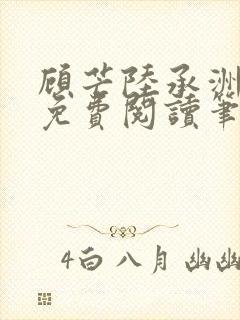 顾芒陸承洲
免費閱讀筆
4白八月幽幽